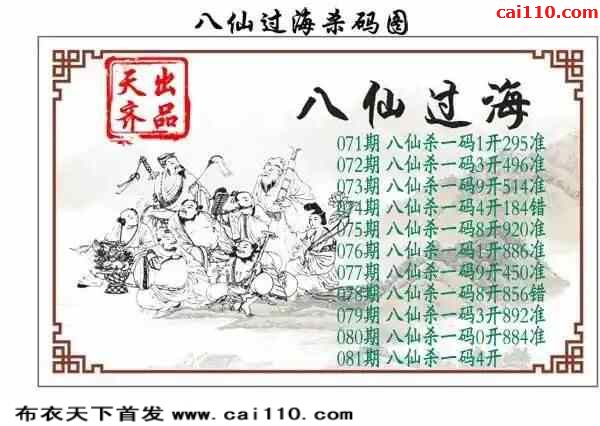 八仙过海杀码图
cai110.com
天齐
出品
八仙过海
071期 八仙杀一码1开295准
072期 八仙杀一码3开496准
073期 八仙杀一码9开514准
074期 八仙杀一码4开184错
075期 八仙杀一码8开920准
076期 八仙杀一码1开886准
077期 八仙杀一码9开450准
078期 八仙杀一码8开856错
079期 八仙杀一码3开892准
080期 八仙杀一码0开884准
081期 八仙杀一码4开
布衣天下首发 www.cai110.com